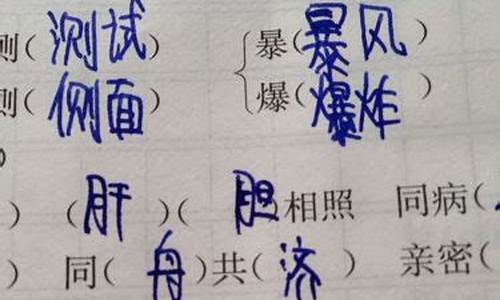 则(测试) 暴(暴风)
则(侧面) 爆(爆炸)
) (肝)(胆)相照 同病(
) 同(舟)共(济) 亲密(